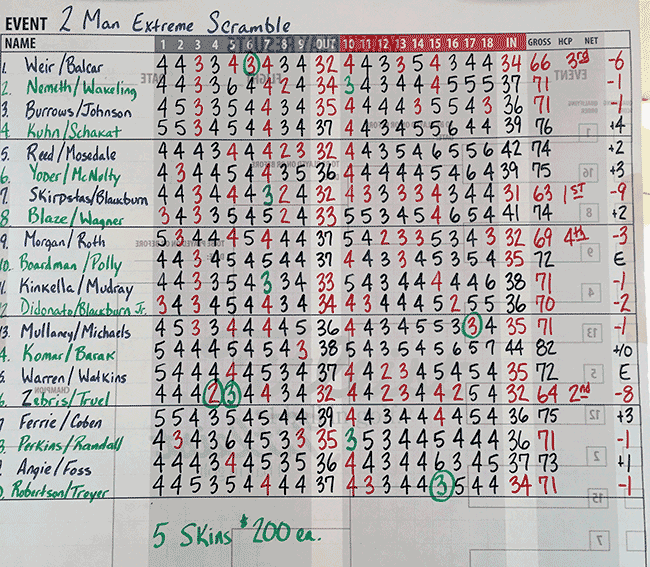 EVENT 2 Man Extreme Scramble
NAME 1 2 3 4 5 6 7 8 9 OUT 10 11 12 13 14 15 16 17 18 IN GROSS HCP NET
1. Weir/Balcar 4 4 3 3 4 3 4 3 4 32 4 4 3 3 5 4 3 4 4 34 66 3rd -6
2. Nemeth/Wakeling 4 4 3 3 6 4 4 2 4 34 3 4 3 4 4 4 5 5 5 37 71 -1
3. Burrows/Johnson 4 5 3 3 5 4 4 3 4 35 4 4 4 4 3 5 5 4 3 36 71 -1
4 Kuhn/Schakat 5 5 3 4 5 4 4 3 4 37 4 4 3 4 5 5 6 4 4 39 76 +4
5. Reed/Mosedale 4 4 4 3 4 4 4 2 3 32 4 4 3 5 4 6 5 5 6 42 74 +2
6. Yoder/McNolty 4 3 4 4 5 4 4 3 5 36 4 4 4 4 4 5 4 6 4 39 75 +3
7. Skirpstas/Blackburn 4 4 3 4 4 4 3 2 4 32 4 3 3 3 3 4 3 4 4 31 63 1ST -9
8 Blaze/Wagner 3 4 3 3 5 4 5 2 4 33 5 5 3 4 5 4 6 5 4 41 74 +2
9. Morgan/Roth 5 3 4 4 4 5 4 4 4 37 5 4 2 3 3 5 3 4 3 32 69 4th -3
10. Boardman/Polly 4 4 3 4 5 4 5 4 4 37 4 4 3 3 4 5 3 5 4 35 72 E
11. Kinkella/Mudray 4 4 3 3 5 4 3 3 4 33 5 4 3 4 4 4 4 4 6 38 71 -1
12 Didonato/Blackburn Jr. 3 4 3 4 5 4 4 3 4 34 4 3 4 4 4 5 2 5 5 36 70 -2
13. Mullaney/Michaels 4 5 3 3 4 4 4 4 5 36 4 4 3 4 5 5 3 3 4 35 71 -1
4. Komar/Barak 5 4 4 4 5 4 5 4 3 38 5 4 3 5 4 5 6 5 7 44 82 +10
5. Warren/Watkins 5 4 4 4 4 4 5 3 4 37 4 4 2 3 4 5 4 5 4 35 72 E
6. Zebris/Truel 4 4 4 2 3 4 4 3 4 32 4 4 2 3 4 4 2 5 4 32 64 2nd -8
7 Ferrie/Coben 5 5 4 3 5 4 5 4 4 39 4 4 3 4 4 4 4 5 4 36 75 +3
8. Perkins/Randall 4 3 4 3 6 4 5 3 3 35 3 5 3 4 4 5 4 4 4 36 71 -1
9. Angie/Foss 4 4 4 3 4 4 5 3 5 36 4 4 3 4 4 6 3 4 5 37 73 +1
0. Robertson/Troyer 4 4 5 3 5 4 4 4 4 37 4 3 3 4 4 3 5 4 4 34 71 -1
5 Skins $200 ea.